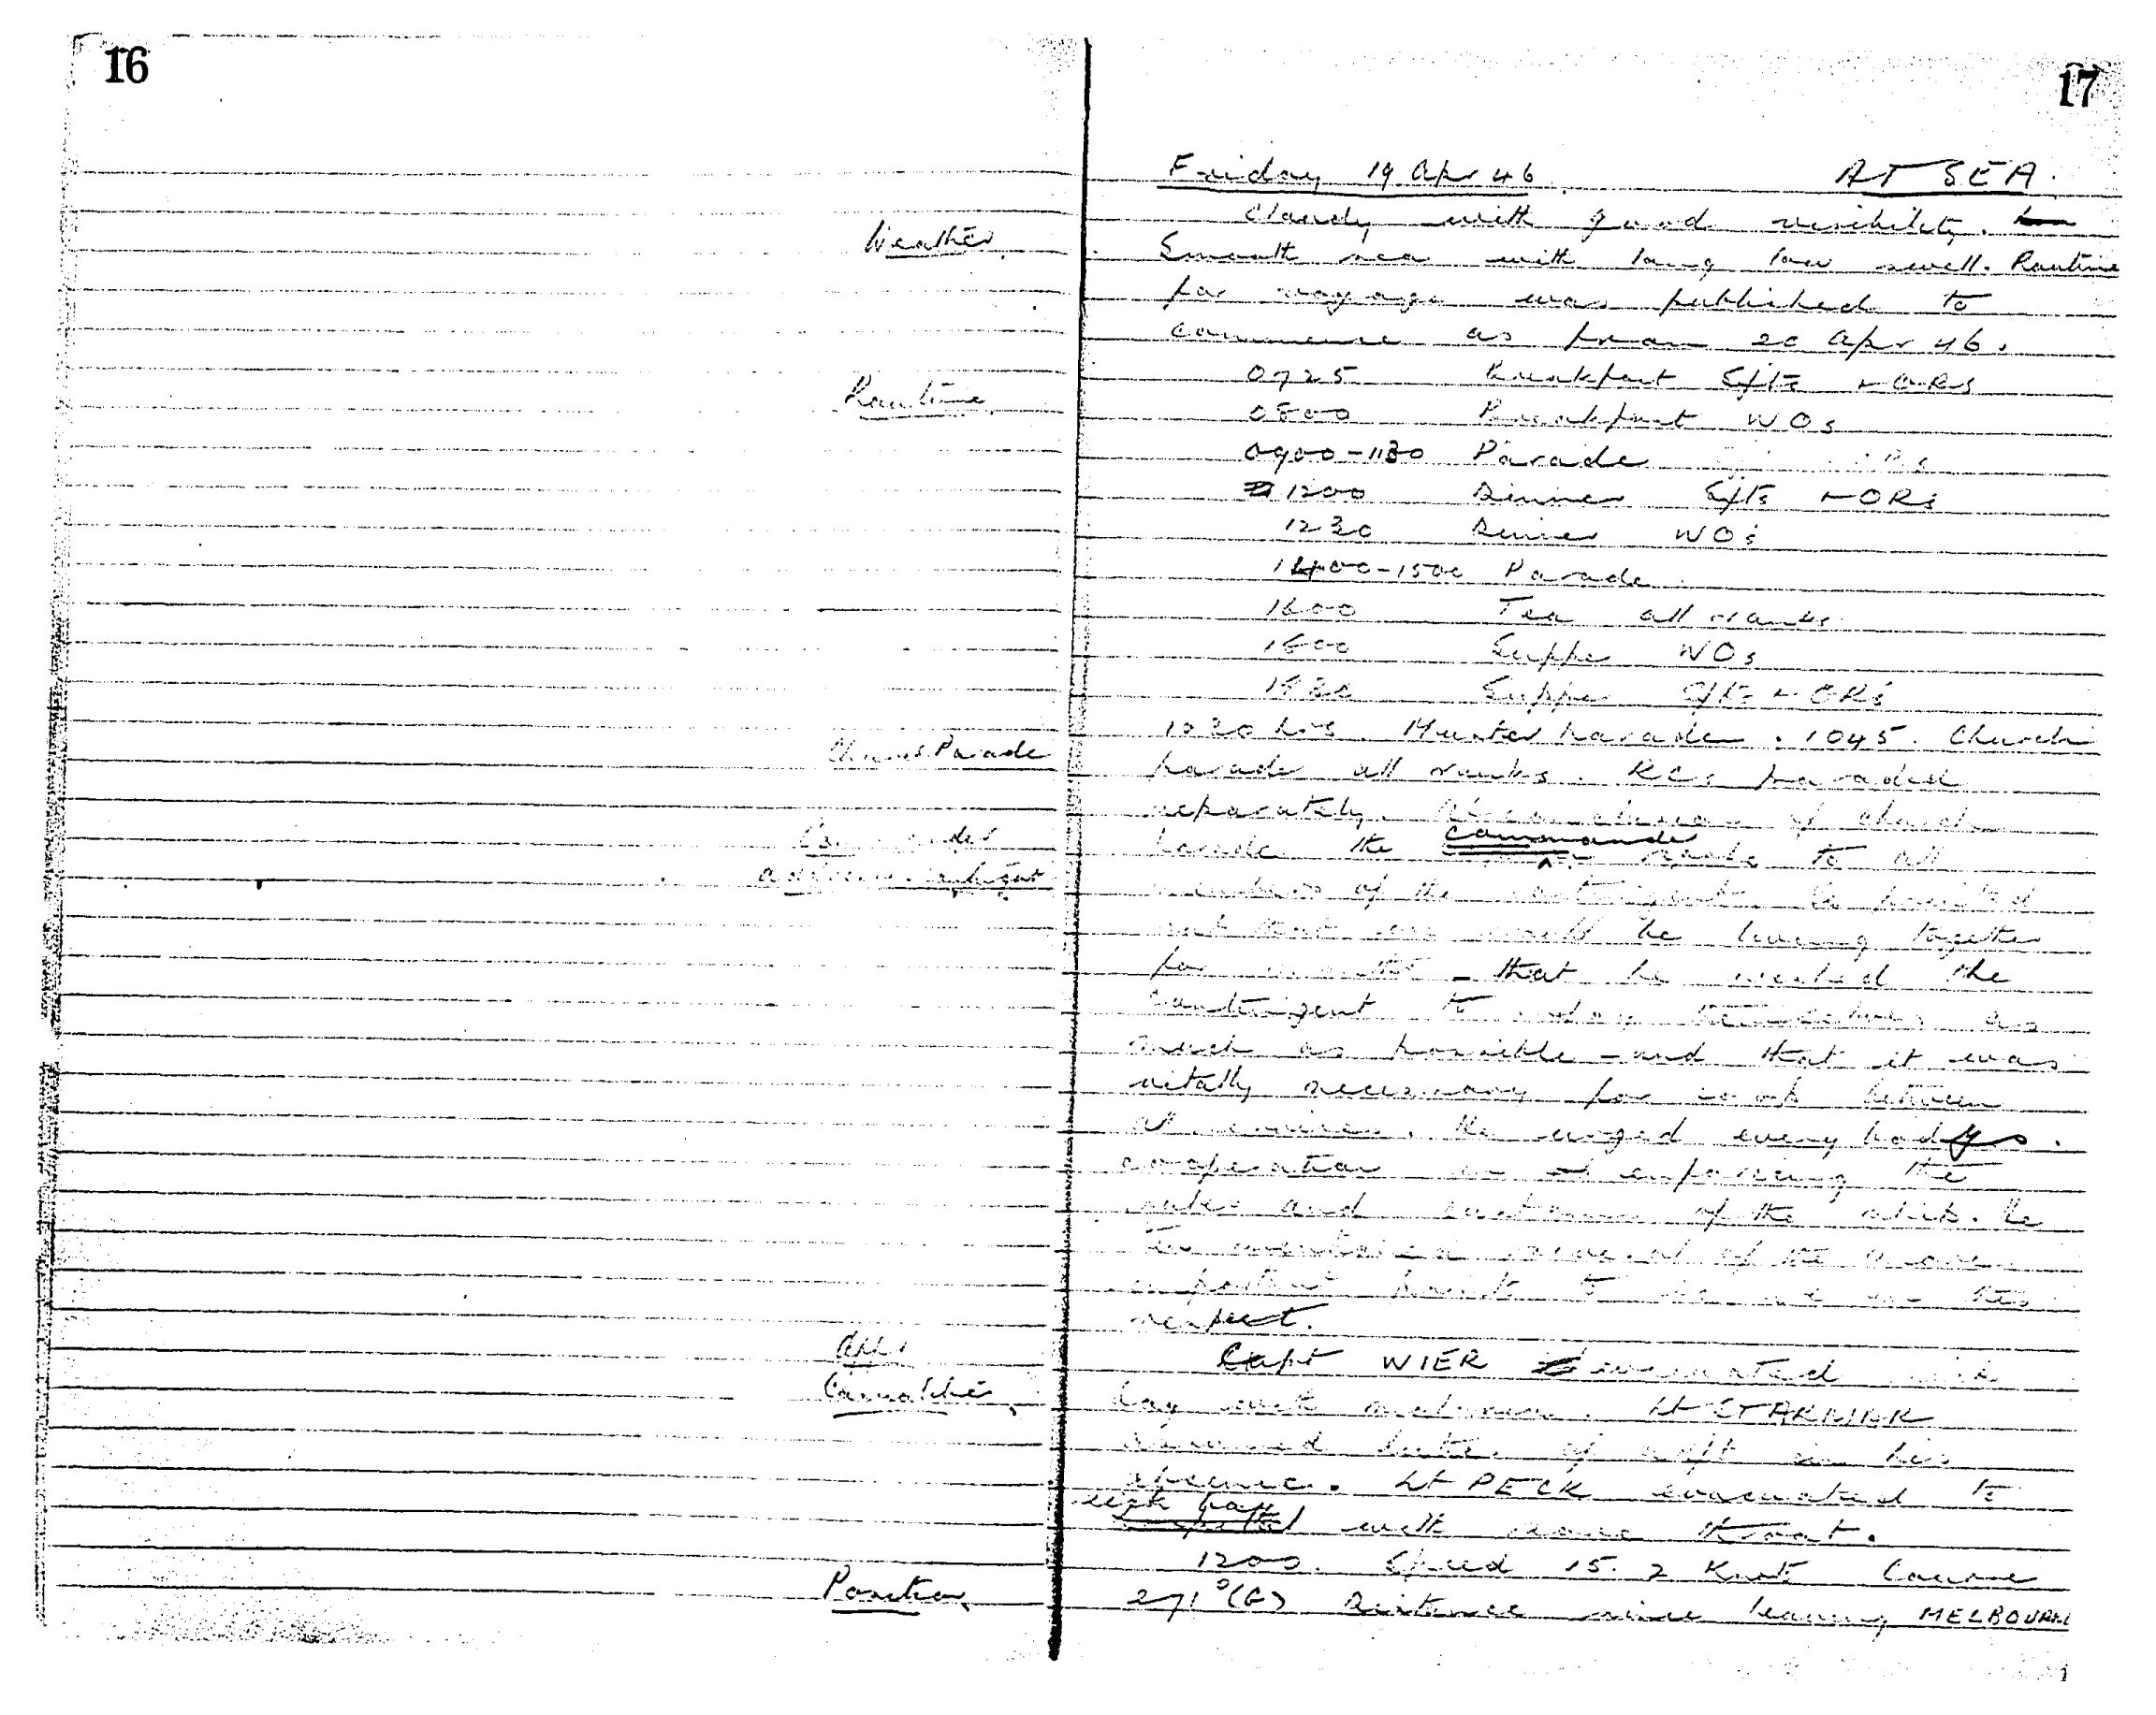 16
17
Friday 19 Apr 46 AT SEA.
Weather
Cloudy with good visibility.
Smooth sea with long low swell. Routine
for voyage was published to
commence as from 20 Apr 46.
Routine
0725 Breakfast Sgts & ORs
0800 Breakfast WOs
0900-1130 Parade
1200 Dinner Sgts & ORs
1230 Dinner WOs
1400-1500 Parade
1600 Tea all ranks
1800 Supper WOs
1830 Supper Sgts & ORs
Church Parade
1030 hrs. Muster parade. 1045. Church
parade all ranks. RCs paraded
separately. At conclusion of church
Commander
parade the Commander spoke to all
address contingent
members of the contingent. He pointed
out that we would be living together
for months - that he wished the
contingent to enjoy themselves as
much as possible - and that it was
vitally necessary for co-op between
all services. He urged everybodys.
cooperation in enforcing the
rules and customs of the ship. He
mentioned several of the more
important points to in this
respect.
Offr
Casualties
Capt WIER evacuated sick
bay with Lt
assumed duties of in his
absence. Lt PECK evacuated to
sick bay with sore throat.
Position
1200. Speed 15.2 Knots Course
271°(G) Distance since leaving MELBOURNE